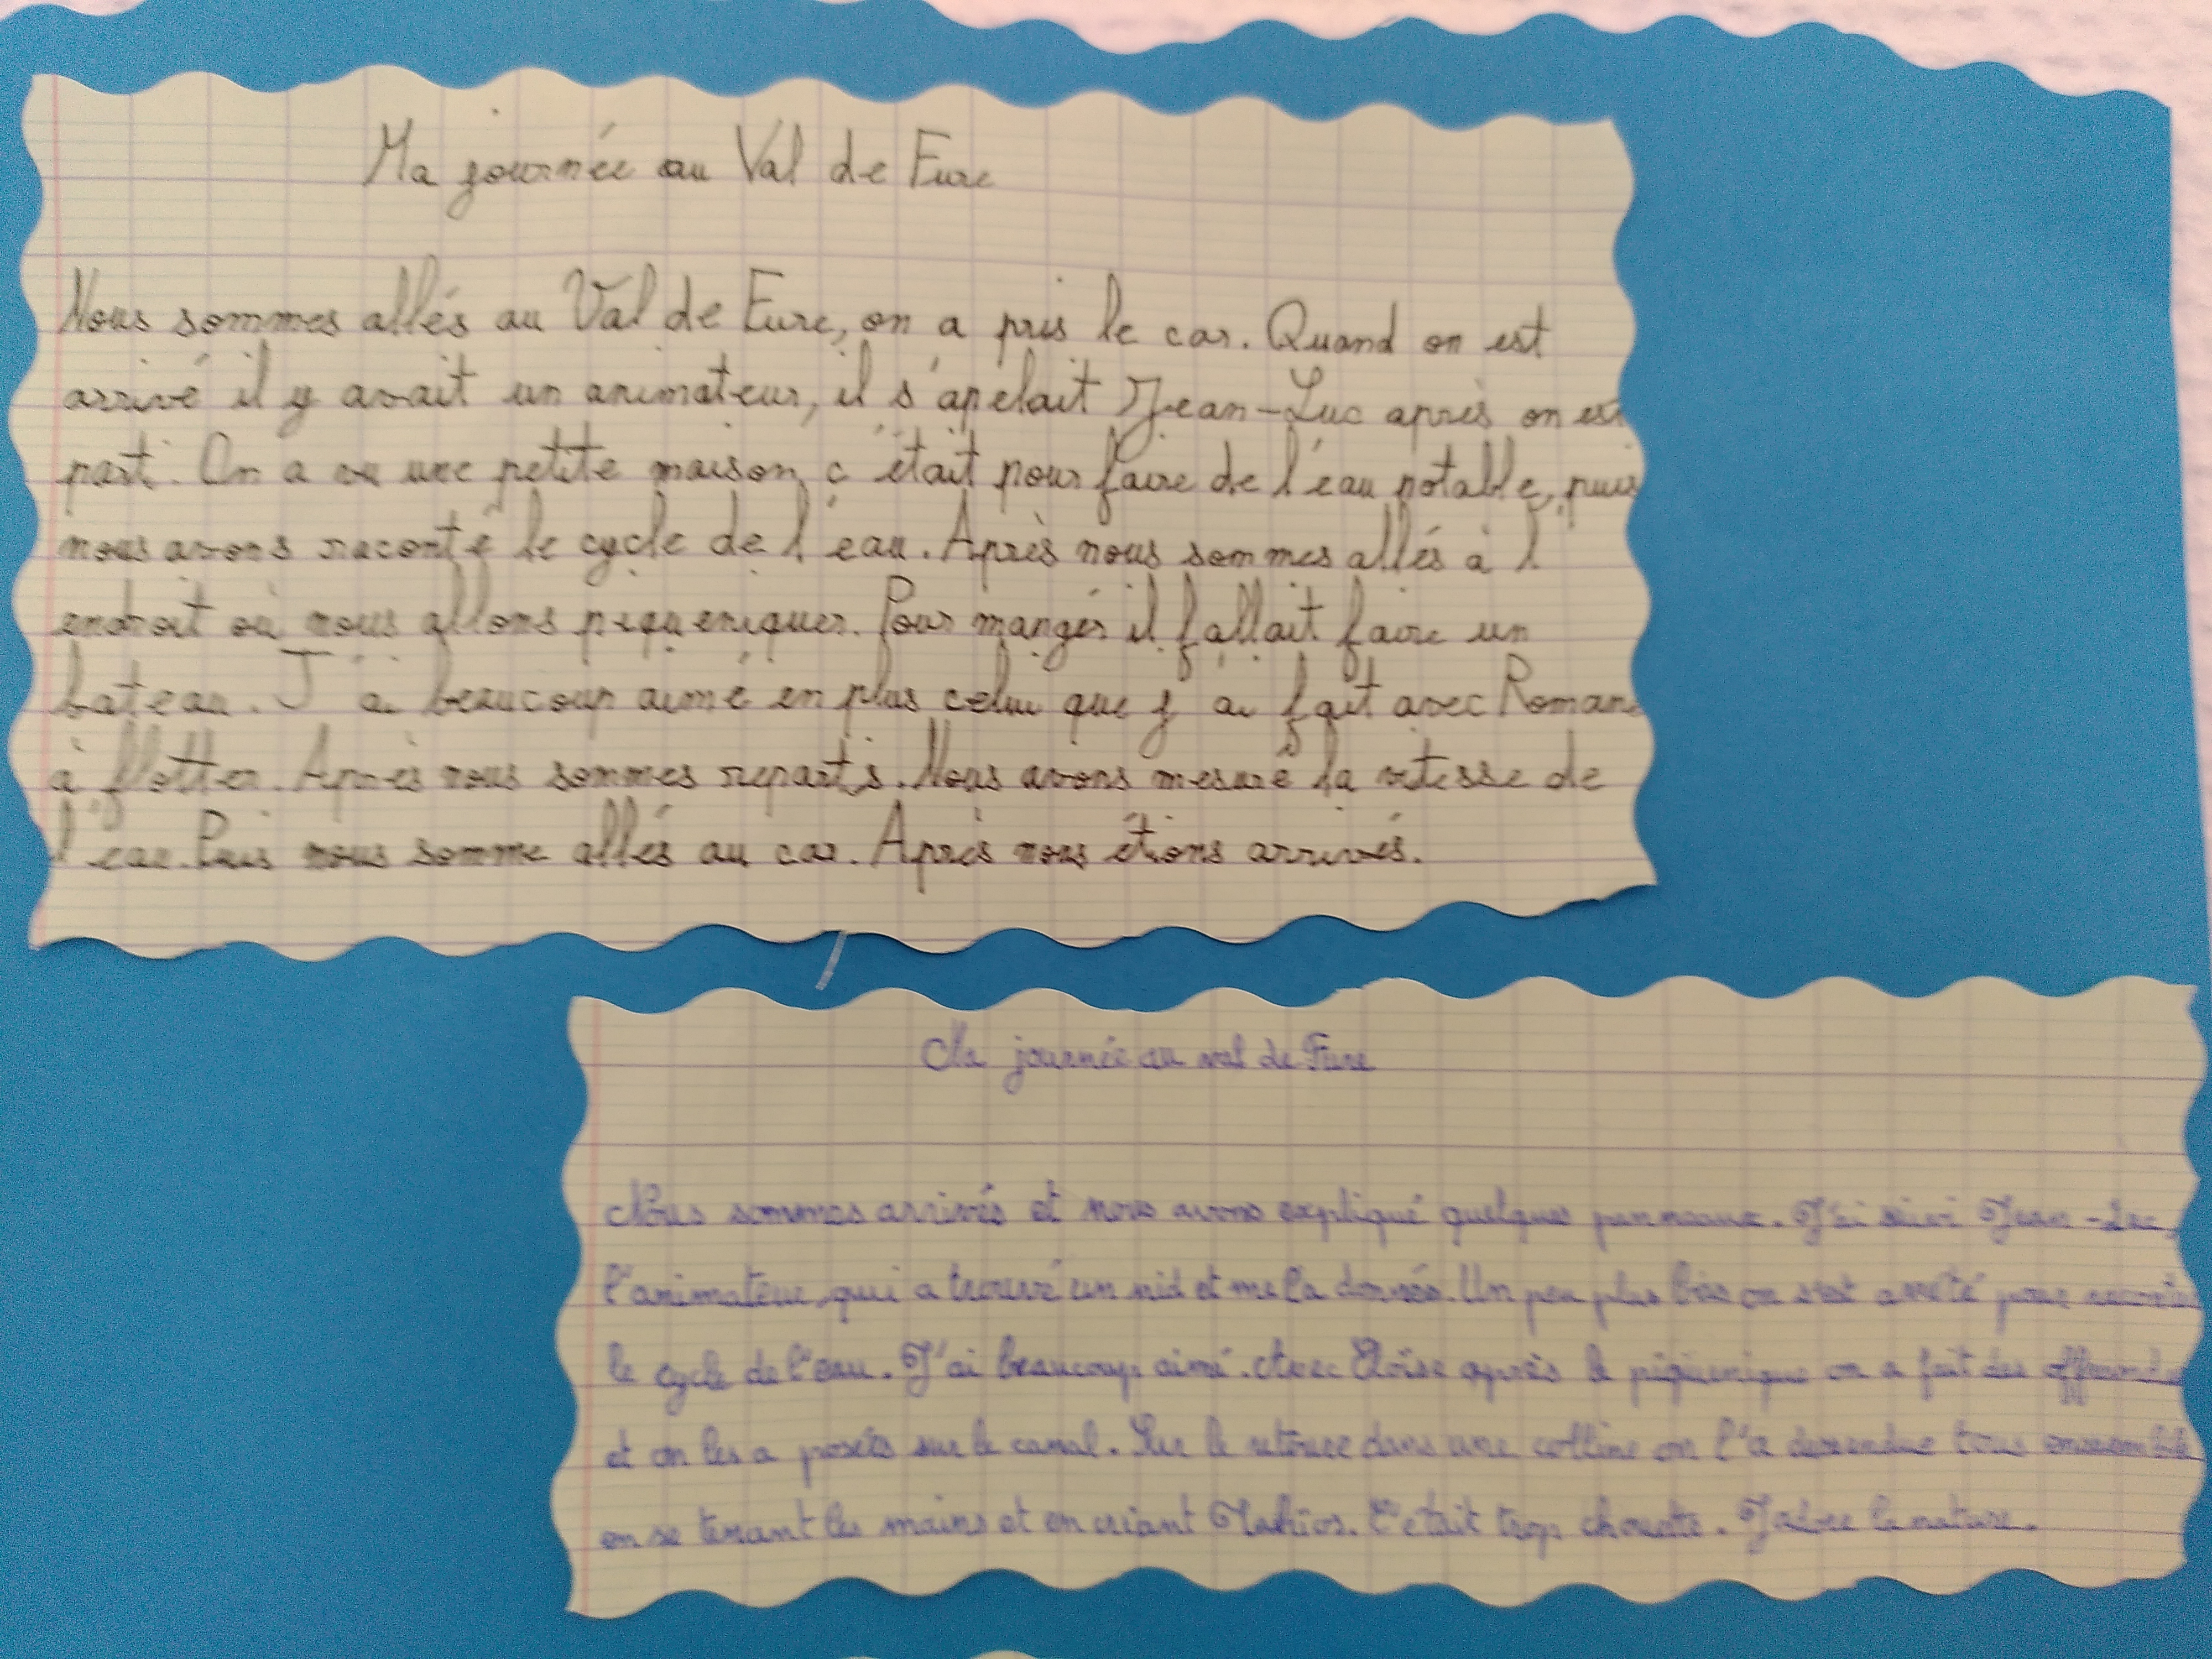 Ma journée au Val de Eure
Nous sommes allés au Val de Eure, on a pris le car. Quand on est
arrivé il y avait un animateur, il s'apelait Jean-Luc après on est
parti. On a vu une petite maison c'était pour faire de l'éau potable, puis
nous avons raconté le cycle de l'eau. Après nous sommes allés à l'
endroit où nous allons piqueniquer. Pour mangér il fallait faire un
bateau. J'ai beaucoup aimé en plus celui que j'ai fait avec Romane
à flotter. Après nous sommes repartis. Nous avons mesuré la vitesse de
l'eau. Puis nous somme allés au car. Après nous étions arrivés.
Ma journée au val de Eure
Nous sommes arrivés et nous avons expliqué quelques panneaux. J'ai suivi Jean-Luc,
l'animateur, qui a trouvé un nid et me l'a donnée. Un peu plus loin on s'est arrêté pour
le cycle de l'eau. J'ai beaucoup aimé. Avec Éloïse après le piquenique on a fait des
et on les a posées sur le canal. Sur le retour dans une colline on l'a descendue tous ensemble
en se tenant les mains et en criant. C'était trop chouette. J'adore la nature.